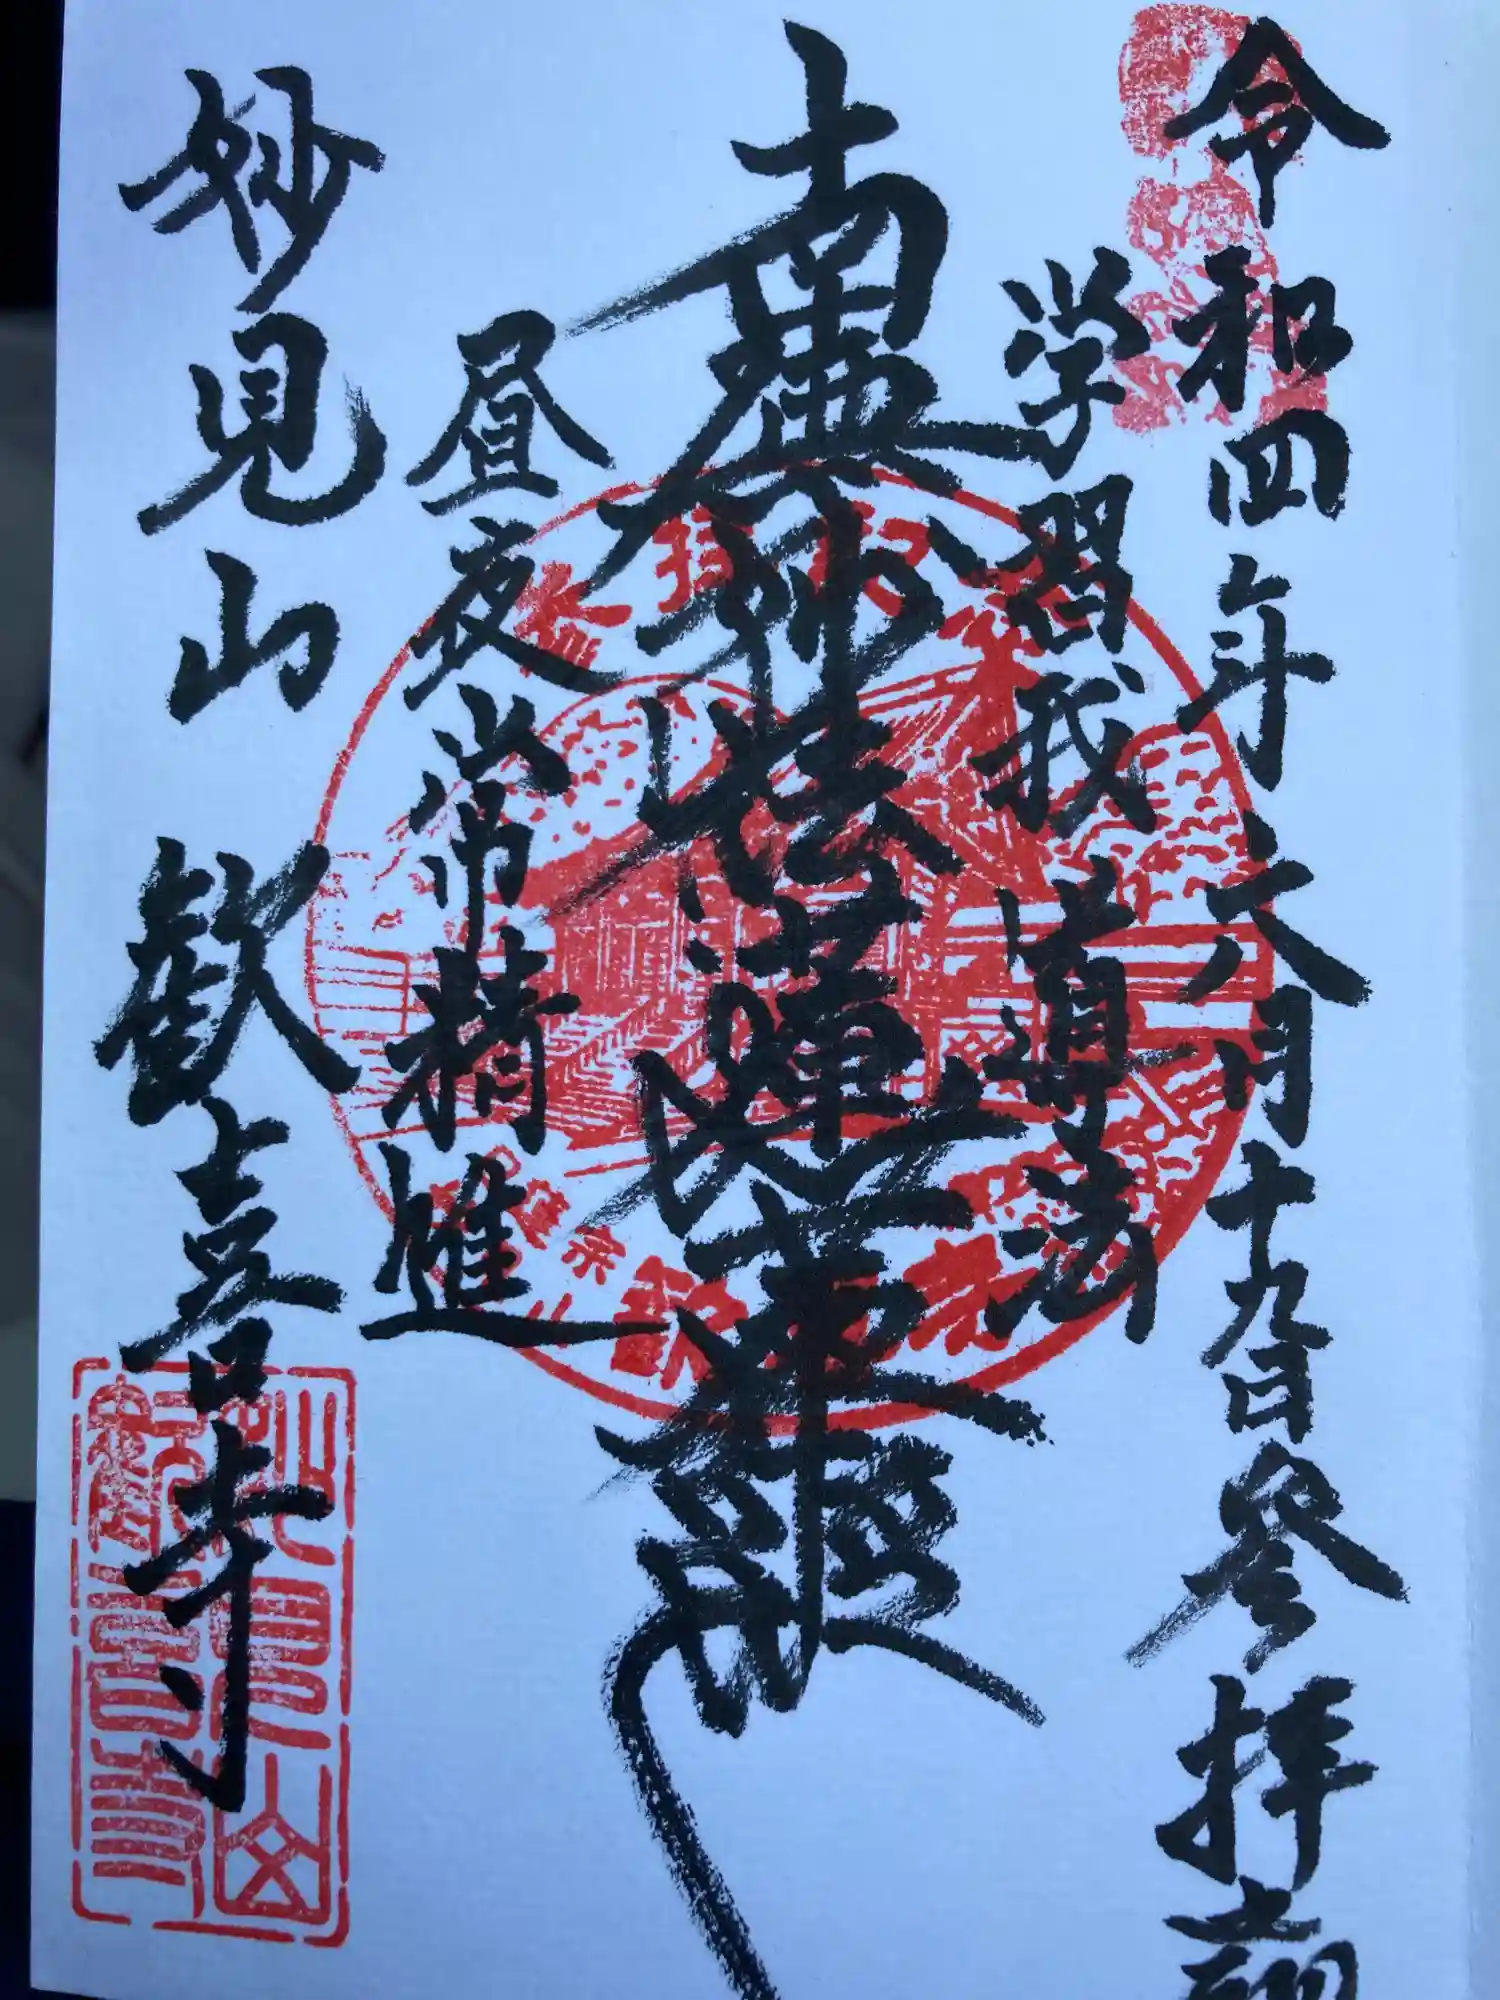 令和四年六月十九日参拝
学習我道法
南無妙法蓮華経
昼夜常精進
妙見山 歓喜寺
妙見山
歓喜寺